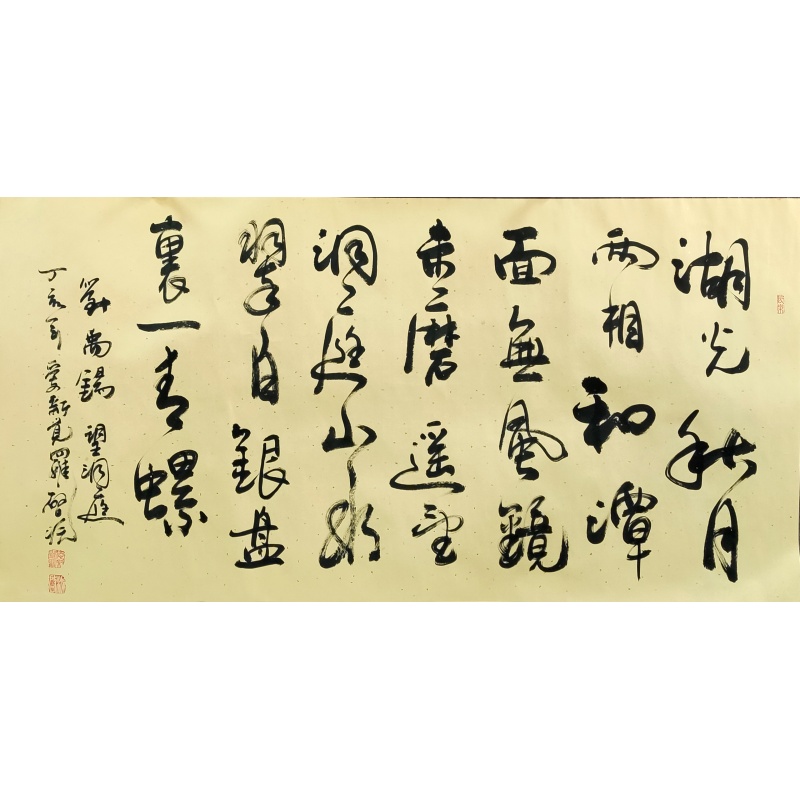 湖光秋月
兩相和潭
面無風鏡
未磨遥望
洞庭山水
翠白銀盘
裏一青螺
劉禹錫 望洞庭
丁亥年愛新覺羅